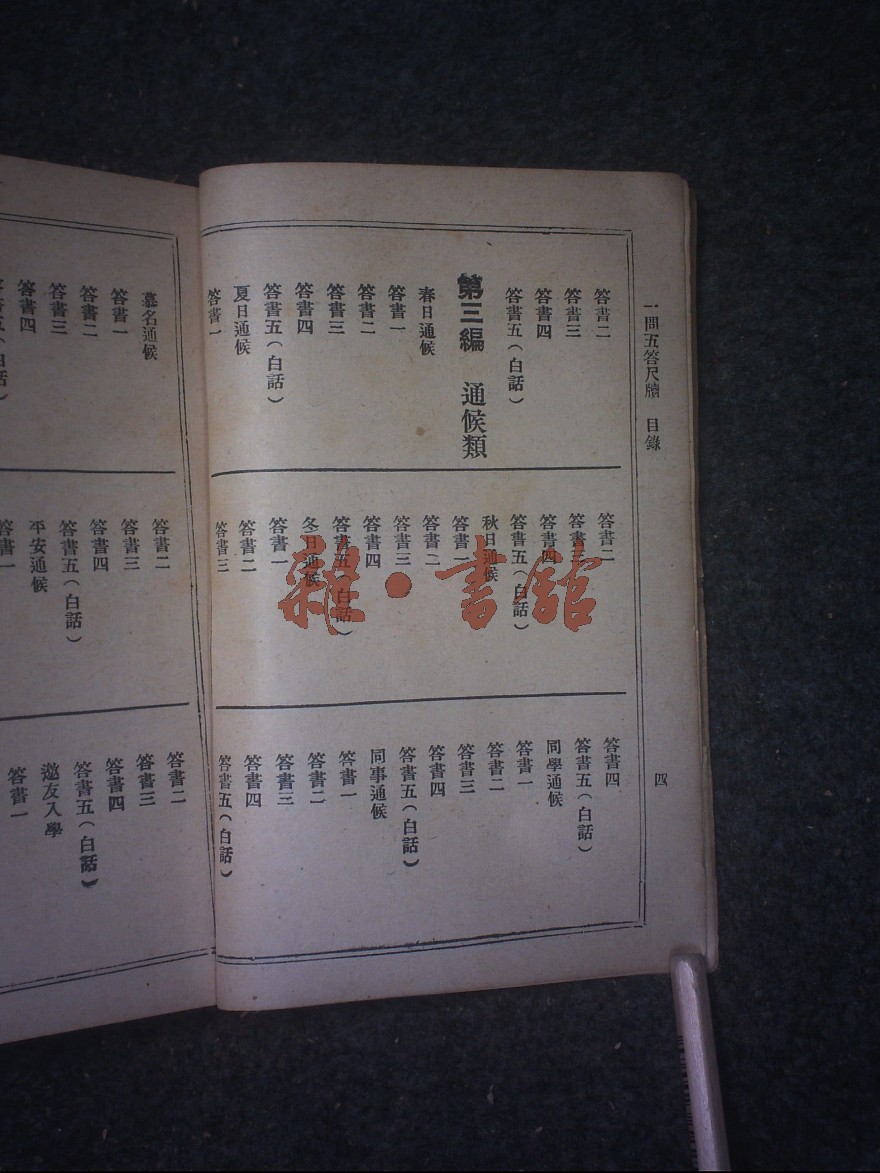 一問五答尺牘　目錄
四
答書二
答書三
答書四
答書五（白話）
第三編　通候類
春日通候
答書一
答書二
答書三
答書四
答書五（白話）
夏日通候
答書一
答書二
答書三
答書四
答書五（白話）
秋日通候
答書一
答書二
答書三
答書四
答書五（白話）
冬日通候
答書一
答書二
答書三
答書四
答書五（白話）
同學通候
答書一
答書二
答書三
答書四
答書五（白話）
同事通候
答書一
答書二
答書三
答書四
答書五（白話）
慕名通候
答書一
答書二
答書三
答書四
答書五（白話）
答書二
答書三
答書四
答書五（白話）
平安通候
答書一
答書二
答書三
答書四
答書五（白話）
邀友入學
答書一
雜·書館